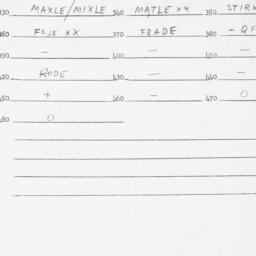 330 MAXLE/MIXLE 340 MATLE XX 350 STIRK
360 FAJE XX 370 FRADE 380 - QF
390 - 400 - 410 -
420 RODE 430 - 440 -
450 + 460 - 470 O
480 O